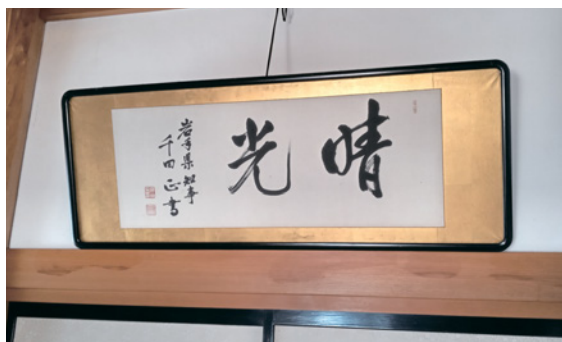 晴光
岩手県知事
千田正書